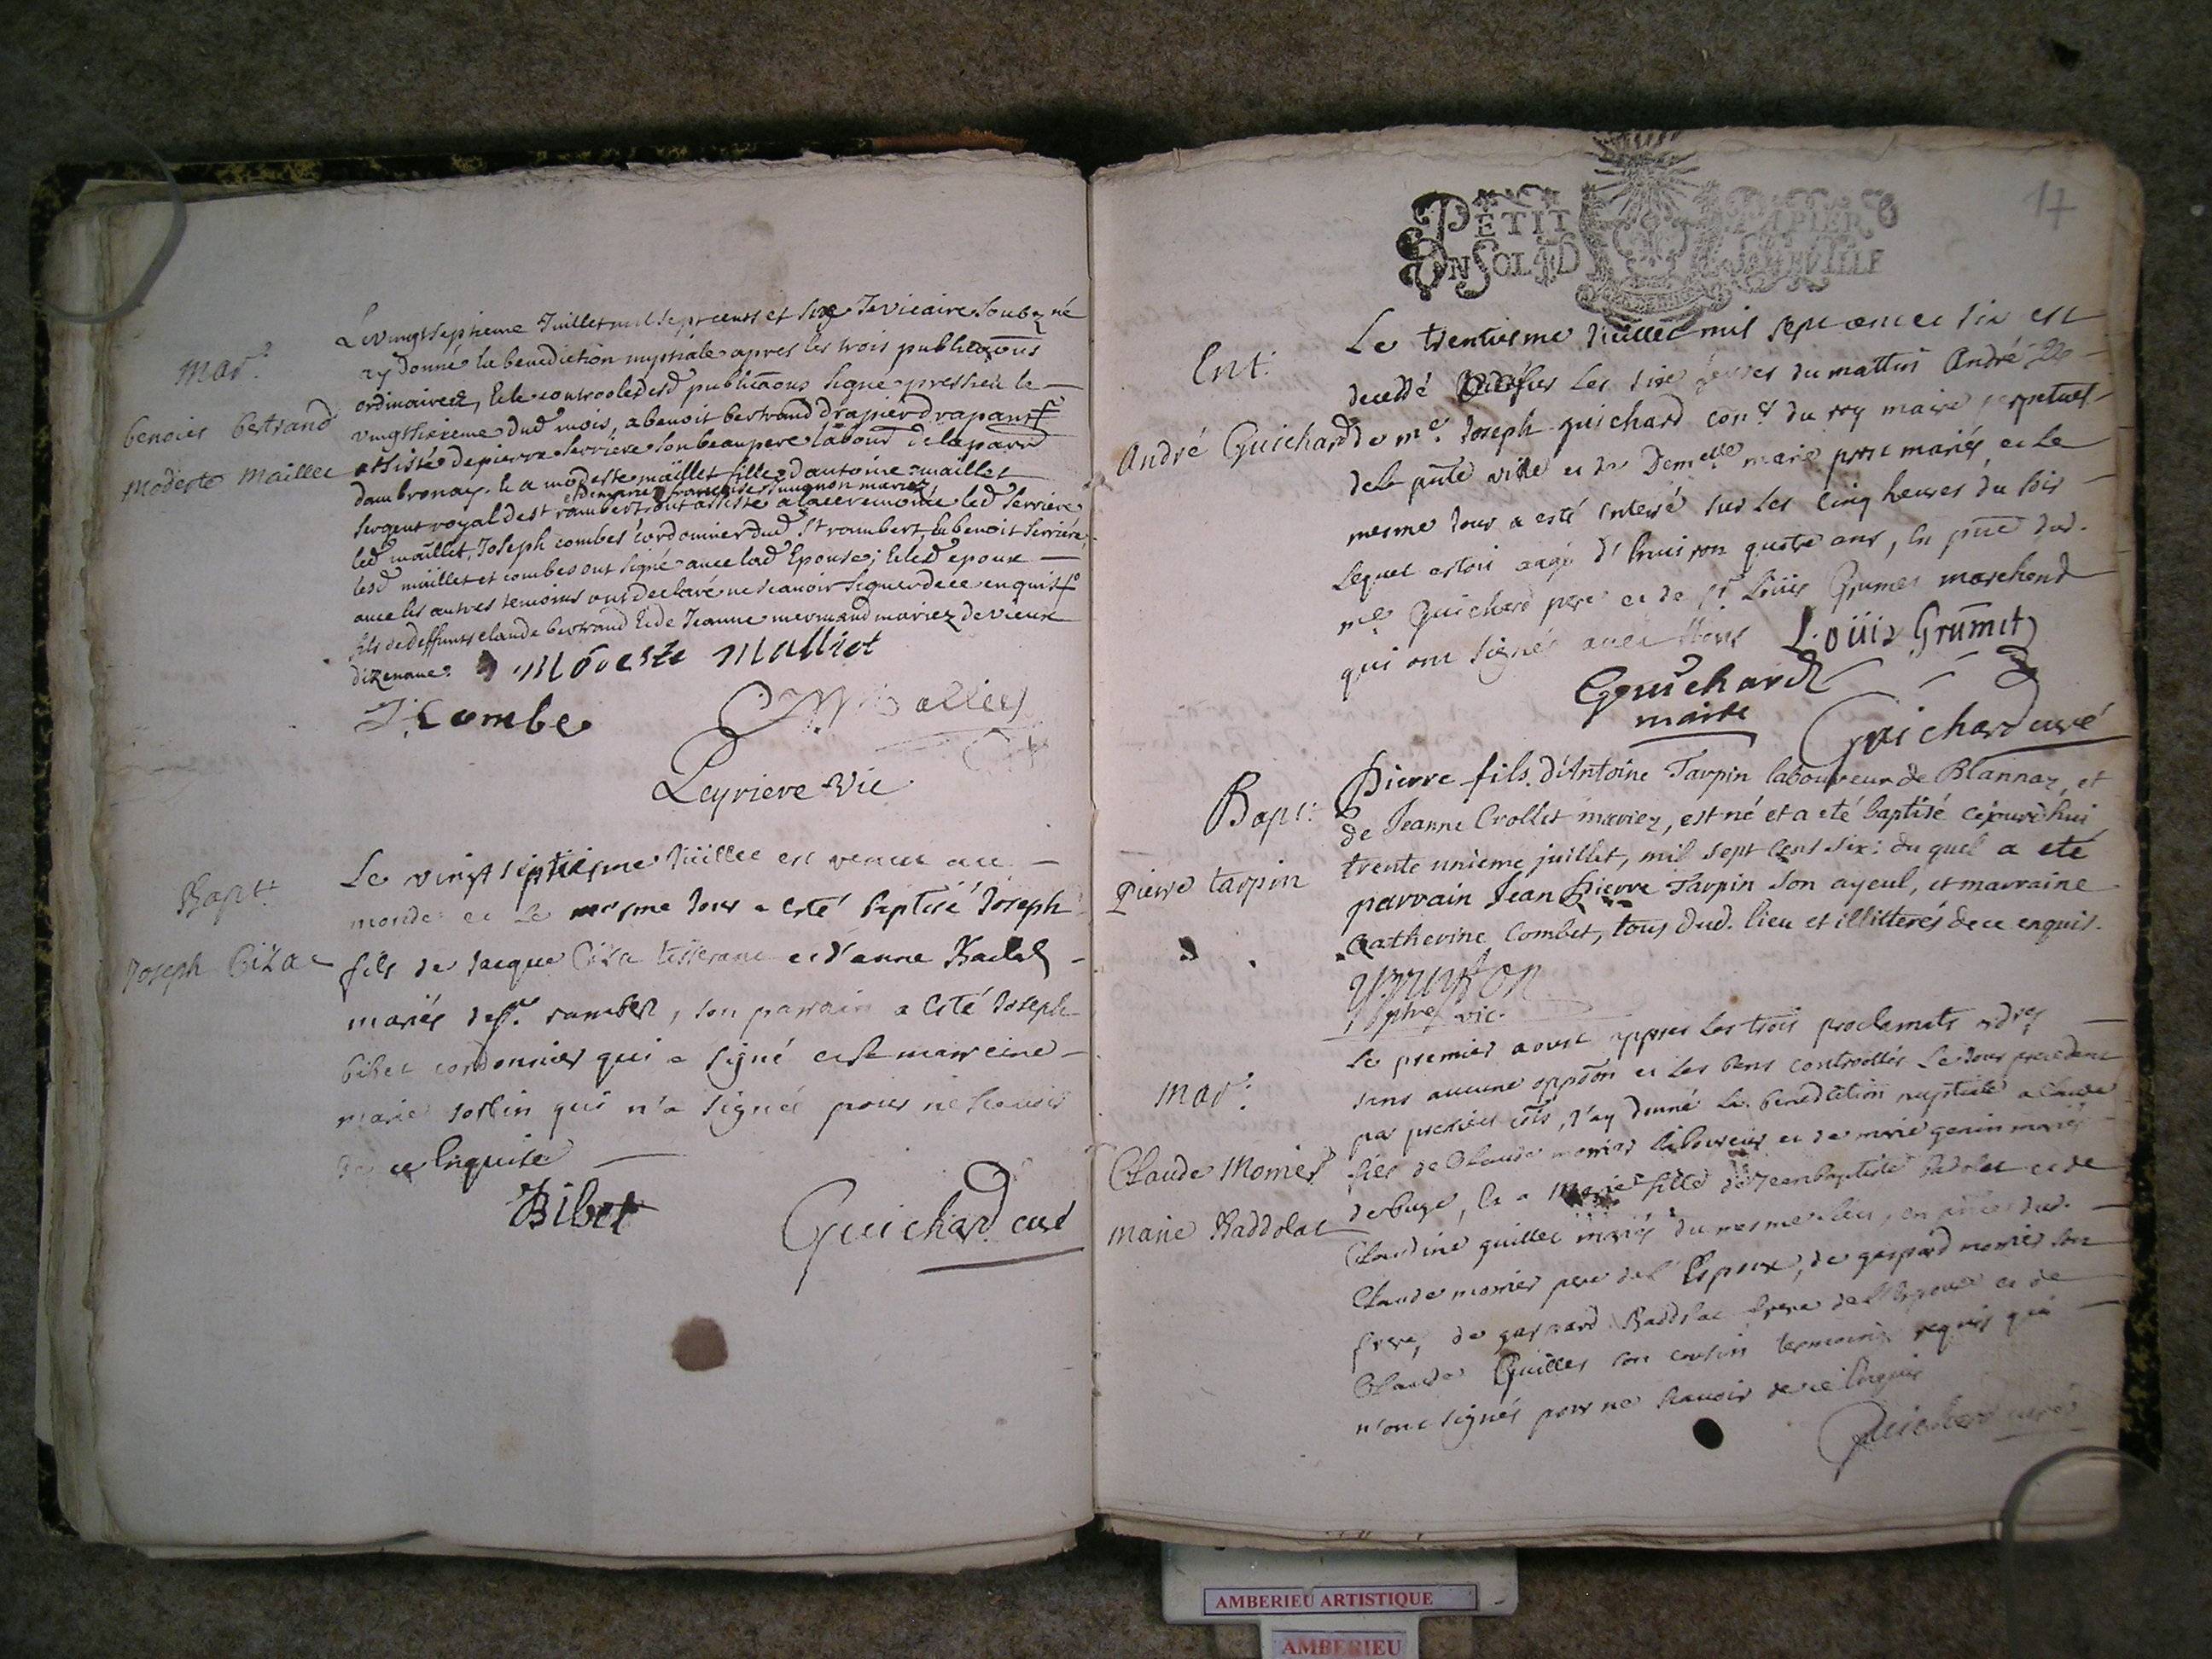 Mar.
benoict bertrand
Modeste Maillet
Le vingtseptieme Juillet mil sept cents et six Je vicaire soubzné
ay donné la benediction nuptiale apres les trois publicaons
ordinaires, et le controole desd publicaons signé pressieu le
vingtsixieme dud mois, a benoit bertrand drapier drapant
assisté de pierre serriere son beaupere labour de la parr
dambronay. Et a modeste maillet fille d'antoine maillet
et de marie françoise mariez
sergent royal de st rambert ont assisté a la ceremonie led serriere
led maillet, Joseph combes cordonnier dud st rambert, et benoit serriere
lesd maillet et combes ont signé avec lad Epouse; et led epoux
avec les autres temoins ont declaré ne scavoir signer de ce enquis
fils de deffunts claude bertrand et de Jeanne mermand mariez de vieux
dizenave.
Modeste Malliet
J. Combe
Mallet
Leyriere Vic
Bapt.
Joseph Bizac
Le vingt septiesme Juillet est venu au
monde et le mesme Jour a esté baptisé Joseph
fils de Jacque tisserant et d'anne
mariés de st. rambert, son parrain a esté Joseph
bibet cordonnier qui a signé et sa marreine
marie qui n'a signé pour ne scavoir
de ce Enquise
Bibet
Guichard curé
17
PETIT PAPIER
UN SOL LA FEUILLE
Ent.
André Guichard
Le trentiesme Juillet mil sept cent et six est
decedé les six heures du mattin André
de me. Joseph guichard conser du roy maire perpetuel
de la pnte ville et de Demelle marie mariés et le
mesme Jour a esté enterré sur les cinq heures du soir
Lequel estoit aagé d'environ quatre ans, en pnce dud.
me Guichard pere et de sr. Loüis Grumet marchand
qui ont signés avec Nous
Loüis Grumet
Guichard
maire
Guichard curé
Bapt.
Pierre tarpin
Pierre fils d'Antoine Tarpin laboureur de Blannaz, et
de Jeanne Crollet mariez, est né et a eté baptisé cejourd'hui
trente unieme juillet, mil sept cens six: du quel a eté
parrain Jean Pierre Tarpin son ayeul, et marraine
Catherine Combet, tous dud. lieu et illitterés de ce enquis.
ptre vic.
Mar.
Claude Monier
Marie Baddolat
Le premier aoust appres les trois proclamats ordres
sans aucune oppoon et les bans controollés le Jour precedent
par pressieu J'ay donné la benediction nuptiale a Claude
fils de Claude monier laboureur et de marie genin mariés
, Et a Marie fille de Jean baptiste badolat et de
Claudine guillet mariés du mesme lieu, en pnce dud.
Claude monier pere de l'Espoux, de gaspard monier son
frere, de gaspard Baddolat frere de l'Epouse et de
Claude Guillet son cousin temoins requis qui
n'ont signés pour ne scavoir de ce Enquis
Guichard curé
AMBERIEU ARTISTIQUE
AMBERIEU